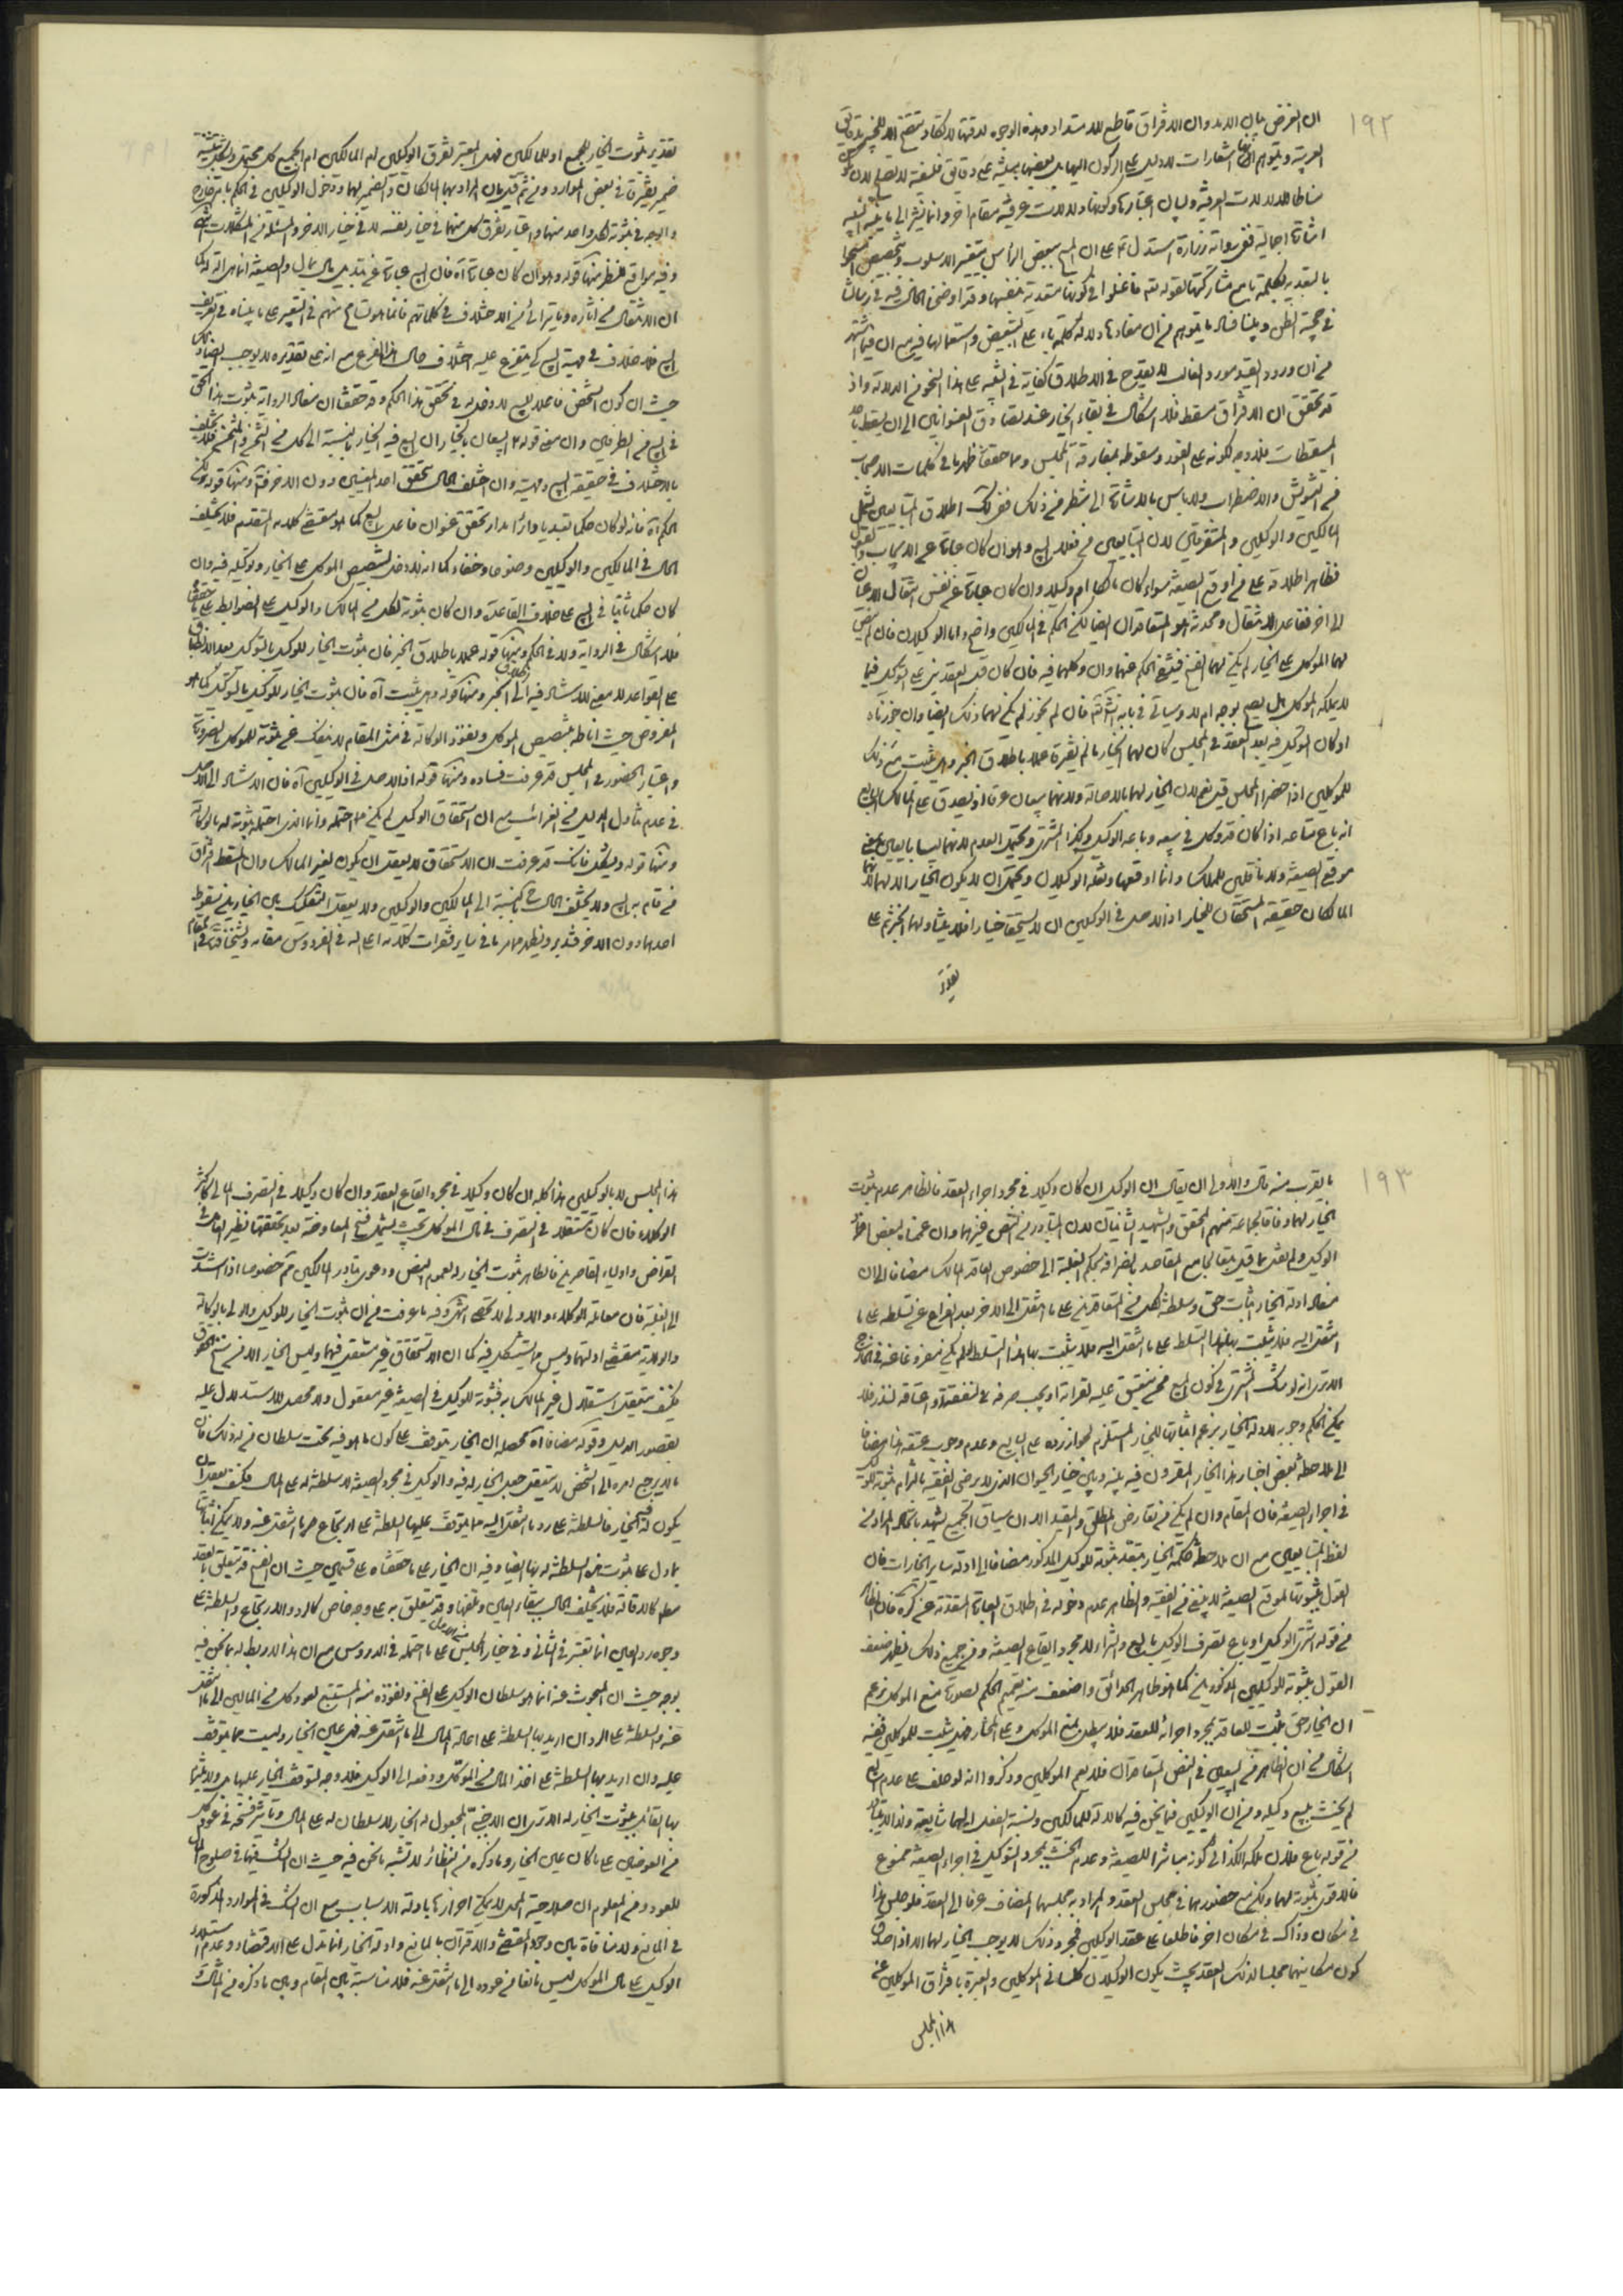 ١٩٢
ان الغرض بيان الابد وان الافتراق قاطع للاستداد وهذه الوجوه لدقتها لا تكاد
العربية اشعارات للدليل على الركون اليها بل بعضها مبنية على دقايق فلسفية لا تصلح لان
مناطا للدلالات العرفية ولبيان اعتبارها وكونها دلالات عرفية مقام اخر وانما نشير الى
اشارة اجمالية ففي رواية زرارة استدل ع على ان المسح ببعض الرأس بتغيير الاسلوب وتخصيص
بالتعدية بكلمة با مع مشاركتها لقوله تع فاغسلوا في كونها متعدية بنفسها وقد اوضحنا الحال فيه في رسالتنا
في حجية الظن وبينا فساد ما يتوهم من ان مفادها دلالة كلمة باء على التبعيض واستعمالها فيه مع ان
من ان ورود القيد مورد الغالب لا يقدح في الاطلاق كفاية في التنبيه على هذا النحو من الدلالة واذ
قد تحقق ان الافتراق مسقط فلا اشكال في بقاء الخيار عند تصادق العنوانين الى ان يسقط
المسقطات فلا وجه لكونه على الفور وسقوطه بمفارقة المجلس ومما حققنا ظهر ما في كلمات الاصحاب
من التشويش والاضطراب ولا باس بالاشارة الى شطر من ذلك فنقول اطلاق المتبايعين يشمل
المالكين والوكيلين والمتفرقين لان المتبايعين من فعلا البيع وهو ان كان عبارة عن الايجاب والقبول
فظاهر اطلاقه على من اوقع الصيغة سواء كان مالكا ام وكيلا وان كان عبارة عن نفس انتقال الاعيان
الى اخر ففاعل الانتقال ومحدثه هو المتعاقدان ايضا لكن الحكم في المالكين واضح واما الوكيلان فان لم ينص
لهما الموكل على الخيار لم يكن لهما الفسخ فينتفي الحكم عنهما وان وكلهما فيه فان كان قبل العقد بنى على التوكيل فيما
لا يملكه الموكل هل يصح بوجه ام لا وسيأتي في بابه فان لم نجوز لم يكن لهما ذلك ايضا وان جوزناه
او كان التوكيل فيه بعد العقد في المجلس كان لهما الخيار ما لم يفترقا عملا باطلاق الخبر وهل يثبت مع ذلك
للموكلين اذا حضرا المجلس قيل نعم لان الخيار لهما بالاصالة ولانهما بيعان عرفا اذ يصدق على المالك البايع
انه باع متاعه اذا كان قد وكل في بيعه وباعه الوكيل وكذا المشتري ويحتمل العدم لانهما ليسا بايعين بمعنى
موقعي الصيغة ولا ناقلين للملك وانما اوقعها ونقله الوكيلان ويحتمل ان لا يكون الخيار الا لهما لانهما
المالكان حقيقة المستحقان للخيار اذ الاصل في الوكيلين ان لا يستحقا خيارا فلا يتناولهما الخبر ثم على
تقدير
تقدير ثبوت الخيار للجميع او للمالكين فهل المعتبر تفرق الوكيلين ام المالكين ام الجميع كل محتمل
ضمير يفترقا في بعض الموارد ومن ثم قيل بان المراد بهما المالكان والضمير لهما ودخول الوكيلين في الحكم بامر خارج
والوجه في ثبوته لكل واحد منهما واعتبار تفرق كل منهما في خيار نفسه لا في خيار الاخر والمسئلة من المشكلات انتهى
وفيه مواقع للنظر منها قوله وهو ان كان عبارة آه فان البيع عبارة عن تبديل مال بمال والصيغة انما هي آلة له كما
ان الانتقال من آثاره وما يترائى من الاختلاف في كلماتهم فانما هو تسامح منهم في التعبير على ما بيناه في تعريف
البيع فلا خلاف في مهية البيع كي يتفرع عليه اختلاف حال هذا الفرع مع انه على تقديره لا يوجب
حيث ان كون الشخص فاعلا للبيع لا دخل له في تحقق هذا الحكم وقد حققنا ان مفاد الرواية ثبوت هذا الحق
في البيع من الطرفين وان معنى قوله ع البيعان بالخيار ان البيع فيه الخيار بالنسبة الى كل من
بالاختلاف في حقيقة البيع ومهيته وان اختلف الحال بتحقق احد المعنيين دون الاخر فتأمل ومنها قوله لكن
الحكم آه فانه لو كان حكما تعبديا دائرا مدار تحقق عنوان فاعل البيع كما هو مقتضى كلامه المتقدم فلا يختلف
الحال في المالكين والوكيلين وضوحا وخفاء كما انه لا دخل لتنصيص الموكل على الخيار وتوكيله فيه وان
كان حكما ثابتا في البيع على خلاف القاعدة وان كان ثبوته لكل من المالك والوكيل على الضوابط على ما حققناه
فلا اشكال في الرواية ولا في الحكم ومنها قوله عملا باطلاق الخبر فان ثبوت الخيار للوكيل بالتوكيل بعد
على القواعد لا معنى للاستناد فيه الى اطلاق الخبر ومنها قوله وهل يثبت آه فان ثبوت الخيار للوكيل بالتوكيل كما هو
المفروض حيث اناطه بتنصيص الموكل ونفوذ الوكالة في مثل المقام لا ينفك عن ثبوته للموكل بالضرورة
واعتبار الحضور في المجلس قد عرفت فساده ومنها قوله اذ الاصل في الوكيلين آه فان الاستناد الى الاصل
في عدم تناول الدليل من الغرائب مع ان استحقاق الوكيل لم يكن مما احتمله وانما الذي احتمله ثبوته له بالوكالة
ومنها قوله ويشكل فانك قد عرفت ان الاستحقاق لا يعقل ان يكون لغير المالك وان المسقط افتراق
من قام به البيع ولا يختلف الحال ح بالنسبة الى المالكين والوكيلين ولا يعقل التفكيك بين الخيارين بسقوط
احدهما دون الاخر فتدبر ويظهر مما مر ما في ساير فقرات كلامه اعلى الله في الفردوس مقامه
١٩٣
ما يقرب منه قال والاولى ان يقال ان الوكيل ان كان وكيلا في مجرد اجراء العقد فالظاهر عدم ثبوت
الخيار لهما وفاقا لجماعة منهم المحقق والشهيد الثانيان لان المتبادر من النص غيرهما وان عممناه لبعض افراد
الوكيل ولم نقل بما قيل تبعا لجامع المقاصد بانصرافه بحكم الغلبة الى خصوص العاقد المالك مضافا الى ان
مفاد ادلة الخيار اثبات حق وسلطنة لكل من المتعاقدين على ما انتقل الى الاخر بعد الفراغ عن تسلطه على ما
انتقل اليه فلا يثبت بها هذا التسلط على ما انتقل اليه فلا يثبت بها هذا التسلط لو لم يكن مفروغا عنه في الخارج
الا ترى انه لو شك المشتري في كون المبيع ممن ينعتق عليه لقرابة او يجب صرفه لنفقة او اعتاقه لنذر فلا
يمكن الحكم بعدم وجوبه لادلة الخيار بزعم اثباتها للخيار المستلزم لجواز رده على البايع وعدم وجوب عتقه هذا مضافا
الى ملاحظة بعض اخبار هذا الخيار المقرون فيه بينه وبين خيار الحيوان الذي لا يرضى الفقيه بالتزام ثبوته للوكيل
في اجراء الصيغة فان المقام وان لم يكن من تعارض المطلق والمقيد الا ان سياق الجميع يشهد باتحاد المراد من
لفظ المتبايعين مع ان ملاحظة حكمة الخيار تبعد ثبوته للوكيل المذكور مضافا الى ادلة ساير الخيارات فان
القول بثبوتها لموقع الصيغة لا ينبغي من الفقيه والظاهر عدم دخوله في اطلاق العبارة المتقدمة عن كره فان الظاهر
من قوله اشترى الوكيل او باع تصرف الوكيل بالبيع والشراء لا مجرد ايقاع الصيغة ومن جميع ذلك يظهر ضعف
القول بثبوته للوكيلين المذكورين كما هو ظاهر الحدائق واضعف منه تعميم الحكم لصورة منع الموكل بزعم
ان الخيار حق يثبت للعاقد بمجرد اجرائه للعقد فلا يبطل بمنع الموكل وعلى المختار فهل يثبت للموكلين ففيه
اشكال من ان الظاهر من البيعين في النص المتعاقدان فلا يعم الموكلين وذكروا انه لو حلف على عدم البيع
لم يحنث ببيع وكيله ومن ان الوكيلين فيما نحن فيه كالآلة للمالكين ونسبة الفعل اليهما شايعة ولذا لا يتبادر
من قوله باع فلان ملكه الكذائي كونه مباشرا للصيغة وعدم الحنث بمجرد التوكيل في اجراء الصيغة ممنوع
فالاقوى ثبوته لهما ولكن مع حضورهما في مجلس العقد والمراد به مجلسهما المضاف عرفا الى العقد فلو جلس هذا
في مكان وذاك في مكان اخر فاطلعا على عقد الوكيلين فمجرد ذلك لا يوجب الخيار لهما الا اذا صدق
كون مكانيهما مجلسا لذلك العقد بحيث يكون الوكيلان كلسانى الموكلين والعبرة بافتراق الموكلين عن
هذا المجلس
هذا المجلس لا بالوكيلين هذا كله ان كان وكيلا في مجرد ايقاع العقد وان كان وكيلا في التصرف المالي كاكثر
الوكلاء فان كان مستقلا في التصرف في مال الموكل بحيث يشمل فسخ المعاوضة بعد تحققها نظير العامل في
القراض واولياء القاصرين فالظاهر ثبوت الخيار له لعموم النص ودعوى تبادر المالكين مم خصوصا اذا استندت
الى الغلبة فان معاملة الوكلاء والاولياء لا تحصى انتهى وفيه ما عرفت من ان ثبوت الخيار للوكيل والولي بالوكالة
والولاية مقتضى ادلتهما وليس مما يستشكل فيه كما ان الاستحقاق غير متعقل فيهما وليس الخيار الا من سنخ الحقوق
فكيف يتعقل استقلال غير المالك به فثبوته للوكيل في الصيغة غير معقول ولا محصل للاستدلال عليه
بقصور الدليل وقوله مضافا آه محصله ان الخيار يتوقف على كون ما هو فيه تحت سلطان من له ذلك فان
ما لا يرجع امره الى الشخص لا يتعقل جعل الخيار له فيه والوكيل في مجرد الصيغة لا سلطنة له على المال فكيف يعقل ان
يكون له الخيار فالسلطنة على رد ما انتقل اليه مما يتوقف عليها السلطنة على ارتجاع ما انتقل عنه ولا يمكن اثباتها
بما دل على ثبوت هذه السلطنة له بها ايضا وفيه ان الخيار على ما حققناه على قسمين حيث ان الفسخ قد يتعلق بالعقد
مطلقا كالاقالة فلا يختلف الحال ببقاء العين وتلفها وقد يتعلق به على وجه خاص كالرد والارتجاع والسلطنة على
وجوه رد العين انما تعتبر في الثاني وفي خيار المجلس على ما احتمله في الدروس مع ان هذا لا ربط له بما نحن فيه
بوجه حيث ان المبحوث عنه انما هو سلطان الوكيل على الفسخ ونفوذه منه المستتبع لعود كل من المالين الى ما انتقل
عنه والسلطنة على الرد ان اريد بها السلطنة على اعادة المال الى ما انتقل عنه فهي عين الخيار وليست مما يتوقف
عليه وان اريد بها السلطنة على اخذ المال من الموكل ودفعه الى الوكيل فلا وجه لتوقف الخيار عليها
بها القائل بثبوت الخيار له الا ترى ان الاجنبي المجعول له الخيار لا سلطان له على المال وتأثير فسخه في عود كل
من العوضين على ما كان عين الخيار وما ذكره من النظائر لا تشبه ما نحن فيه حيث ان الشك فيها في صلوح المال
للعود ومن المعلوم ان صلاحية المحل لا يمكن احرازها بادلة الاسباب مع ان الشك في الموارد المذكورة
في المانع ولا منافاة بين وجود المقتضي والاقتران بالمانع وادلة الخيار انما تدل على الاقتضاء وعدم استيلاء
الوكيل على مال الموكل ليس مانعا من عوده الى ما انتقل عنه فلا مناسبة بين المقام وبين ما ذكره من المثال